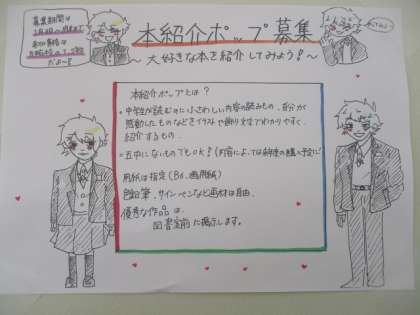 募集期間は
参加資格は
だよ〜!
本紹介ポップ募集
〜大好きな本を紹介してみよう!〜
本紹介ポップとは?
・中学生が読むのにふさわしい内容の読みもの、自分が
感動したものなどをイラストや飾り文字でわかりやすく
紹介するもの。
・五中にないものでもOK!(内容によっては
用紙は指定(B6、画用紙)
色鉛筆、サインペンなど画材は自由。
優秀な作品は、
図書室前に掲示します。